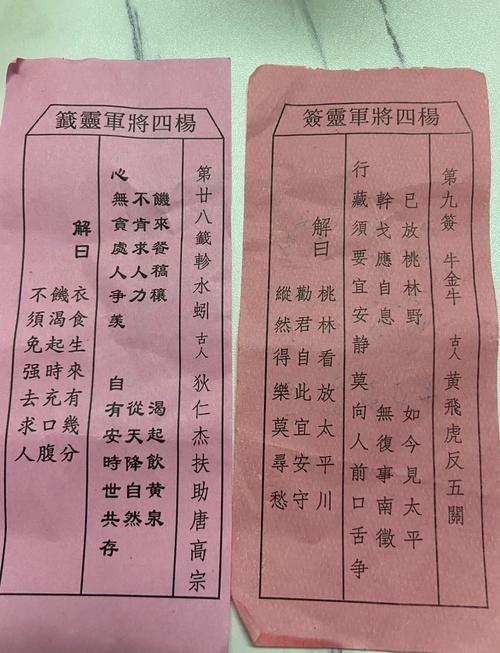 楊四將軍靈籤
第廿八籤軫水蚓 古人 狄仁杰扶助唐高宗
饑來餐稿穰 渴起飲黄泉
不肯求人力 從天降自然
心無貪處人争羨 自有安時世共存
解曰
衣食生來有幾分
饑渴起時充口腹
不須免强去求人
楊四將軍靈簽
第九簽 牛金牛 古人 黄飛虎反五關
已放桃林野 如今見太平
幹戈應自息 無復事南徵
行藏須要宜安静 莫向人前口舌争
解曰
桃林看放太平川
勸君自此宜安守
縱然得樂莫尋愁